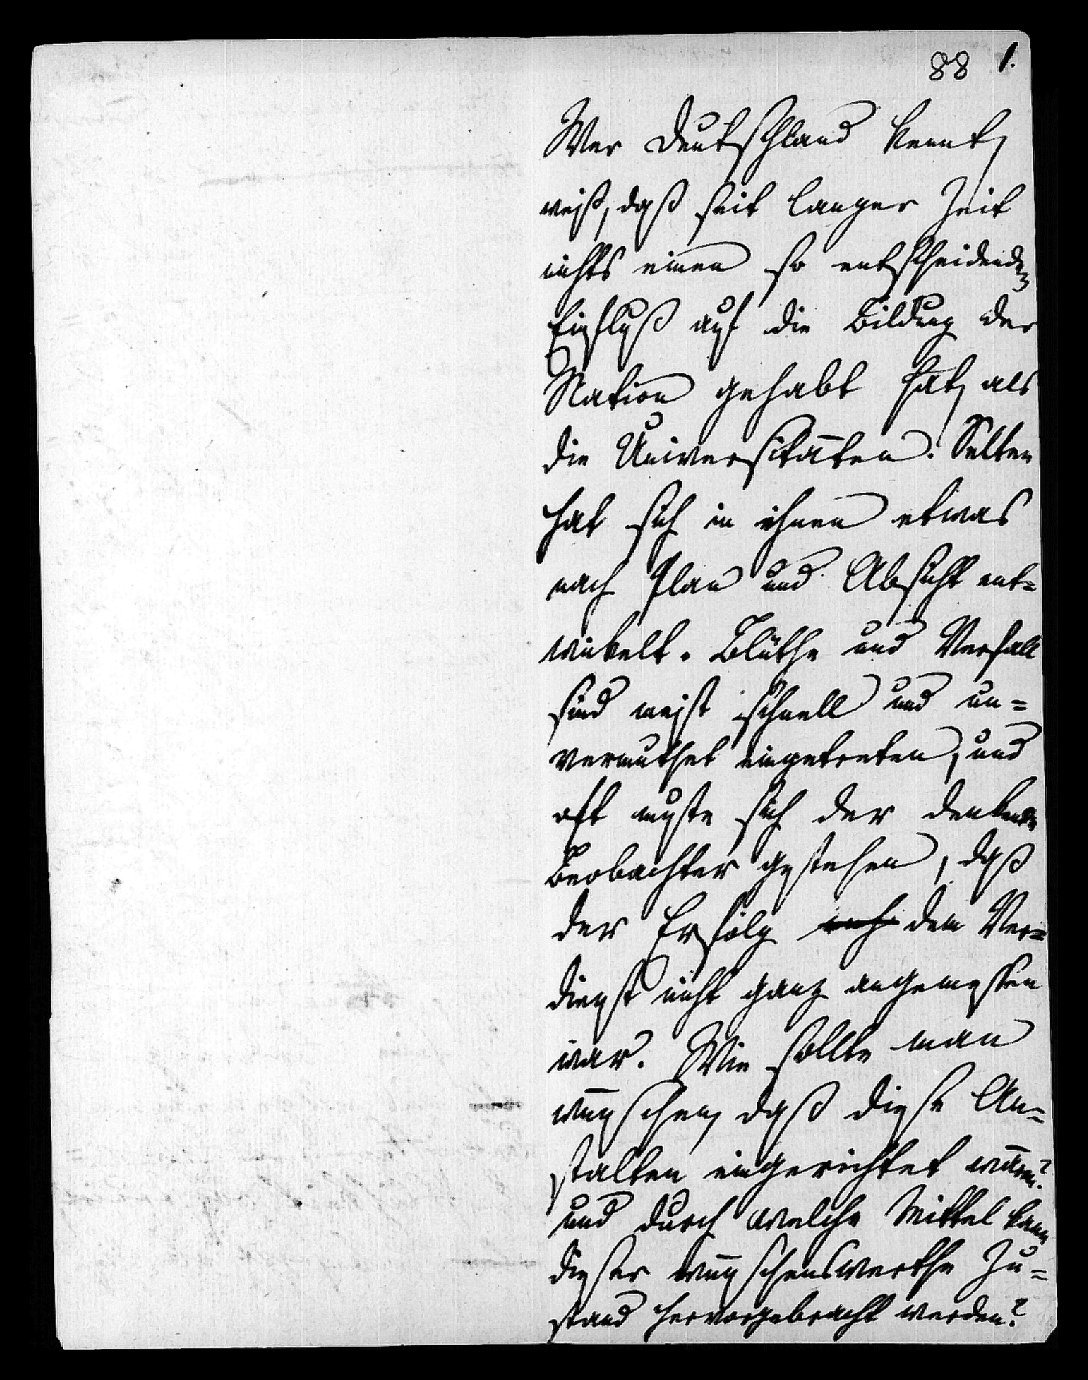 88 1.
Wer Deutschland kennt,
weiß, daß seit langer Zeit
nichts einen so entscheidenden
Einfluß auf die Bildung der
Nation gehabt hat, als
die Universitäten. Selten
hat sich in ihnen etwas
nach Plan und Absicht ent=
wickelt. Blüthe und Verfall
sind meist schnell und un=
vermuthet eingetreten, und
oft muste sich der denkende
Beobachter gestehen, daß
der Erfolg auch dem Ver=
dienst nicht ganz angemessen
war. Wie sollte man
wünschen, daß diese An=
stalten eingerichtet wären?
und durch welche Mittel kann
dieser wünschenswerthe Zu=
stand hervorgebracht werden?